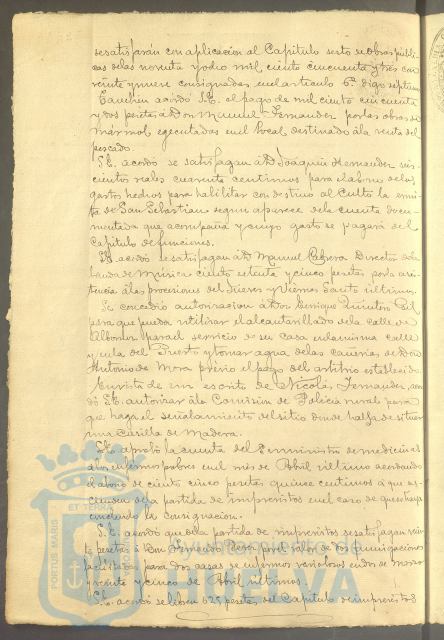 se satisfarán con aplicacion al Capítulo sesto ú obras públi-
cas delas noventa y ocho mil ciento cincuenta y tres con
veinte y nueve consignadas en el artículo 6º digo septimo
Tambien acordó S.E. el pago de mil ciento cincuenta
y dos pesetas á Don Manuel Fernandez por las obras de
mármol egecutadas en el local destinado á la venta del
pescado.
S.E. acordó se satisfagan á D. Joaquin Hernandez
cientos reales cuarenta centimos para el abono de los
gastos hechos para habilitar con destino al Culto la ermi-
ta de San Sebastian segun aparece de la cuenta docu-
mentada que acompaña y cuyo gasto se pagará del
Capítulo de funciones.
S.E. acordó se satisfagan á D. Manuel Cabrera Director de la
banda de Música ciento setenta y cinco pesetas por la asis-
tencia á las procesiones del Jueves y Viernes Santo últimos.
Se concedió autorizacion á Don Enrique Quintero
para que pueda utilizar el alcantarillado de la calle de
Albornoz para el servicio de su casa en la misma calle
y en la del Puerto y tomar agua de las cañerias de Don
Antonio de Mora previo el pago del arbitrio establecido
En vista de un escrito de Nicolás Fernandez, acor-
dó S.E. autorizar á la Comision de Policia rural para
que haga el señalamiento del sitio donde halla de situar
una casilla de Madera.
S.E. aprobó la cuenta del suministro de medicinas
á los enfermos pobres en el mes de Abril último acordando
el abono de ciento cinco pesetas quince centimos á que as-
cienden de la partida de imprevistos en el caso de que se haya
concluido la consignacion.
S.E. acordó que de la partida de imprevistos se satisfagan vein-
te pesetas á Don por el valor de dos fumigaciones
facilitadas para dos casas de enfermos variolosos en dos de Marzo
y veinte y cinco de Abril últimos.
S.E. acordó se libren 625 pesetas del Capítulo de imprevistos
PORTUS MARIS
ET TERRAE
HUELVA